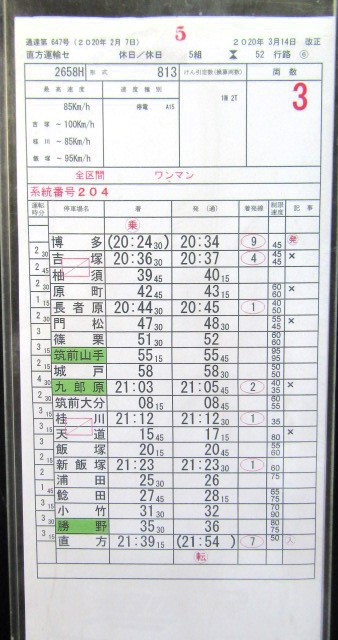 5
通達第 647号(2020年 2月 7日) 2020年 3月14日 改正
直方運輸セ 休日/休日 5組 52 行路 ⑥
2658H 形式 813 けん引定数(換算両数) 両数
最高速度 速度種別 1M 2T 3
85Km/h 停電 A15
吉塚 ~100Km/h
桂川 ~ 85Km/h
飯塚 ~ 95Km/h
全区間 ワンマン
系統番号204
運転時分 停車場名 着 発(通) 着発線 制限速度 記事
乗
博多 (20:24 30) 20:34 9 45 発
2 30
吉塚 (20:36 30) 20:37 4 45 ×
2 45
柚須 39 45 40 15
2 30
原町 42 45 43 15 60 ×
1 15
長者原 20:44 30 20:45 1
2 30
門松 47 30 48 30 ×
篠栗 51 30 52
筑前山手 55 15 55 45
城戸 58 58 30
九郎原 21:03 21:05 45 2 ×
筑前大分 08 15 08 45
桂川 21:12 21:12 30 1 35
天道 15 45 17 15 80 ×
飯塚 20 15 20 45
新飯塚 21:23 21:23 30 1 60
浦田 25 30 26 75
鯰田 27 45 28 15
小竹 31 30 32
勝野 35 30 36
直方 21:39 15 (21:54 ) 7 50 入
転